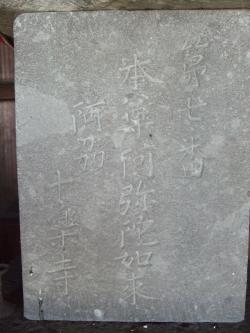 第七番
本尊阿弥陀如来
阿州
十楽寺